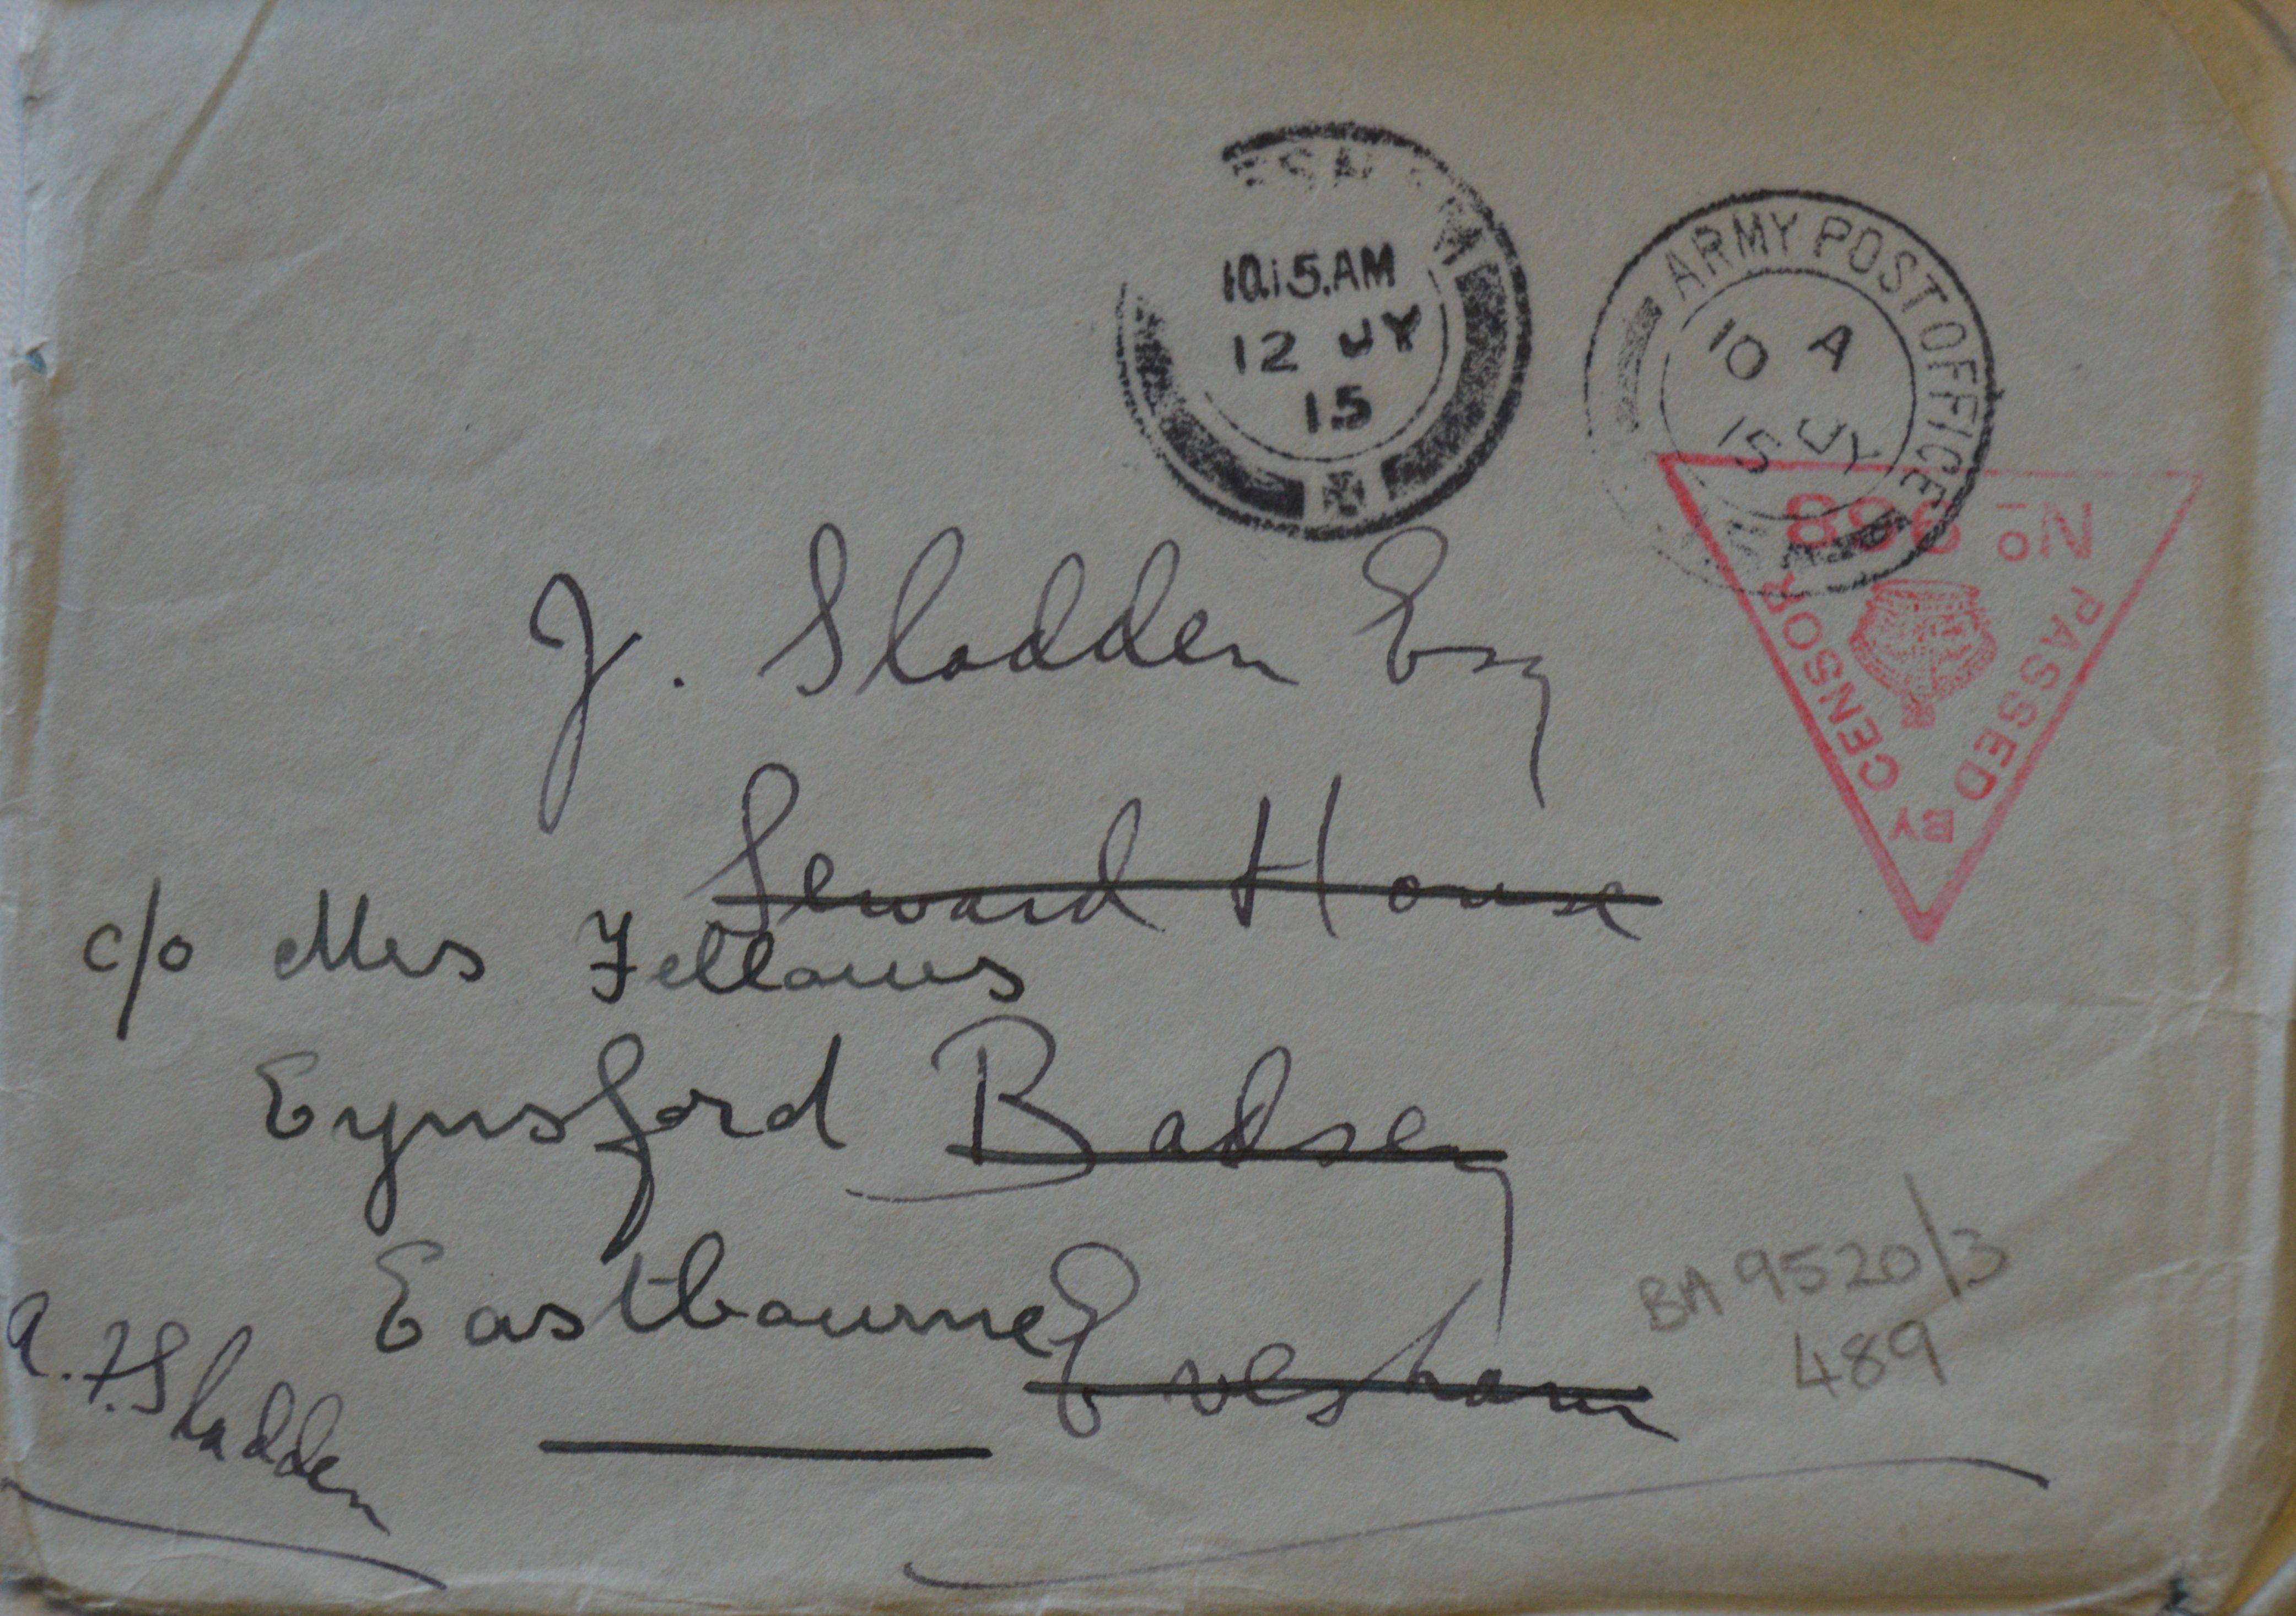 ESHAM
10.15.AM
12 JY
15
ARMY POST OFFICE
A
10 JY
15
No
PASSED BY CENSOR
J. Sladden Esq
Seward House
c/o Mrs Fellows
Badsey
Eynsford
Evesham
Eastbourne
A. F. Sladden
BA 9520/3
489